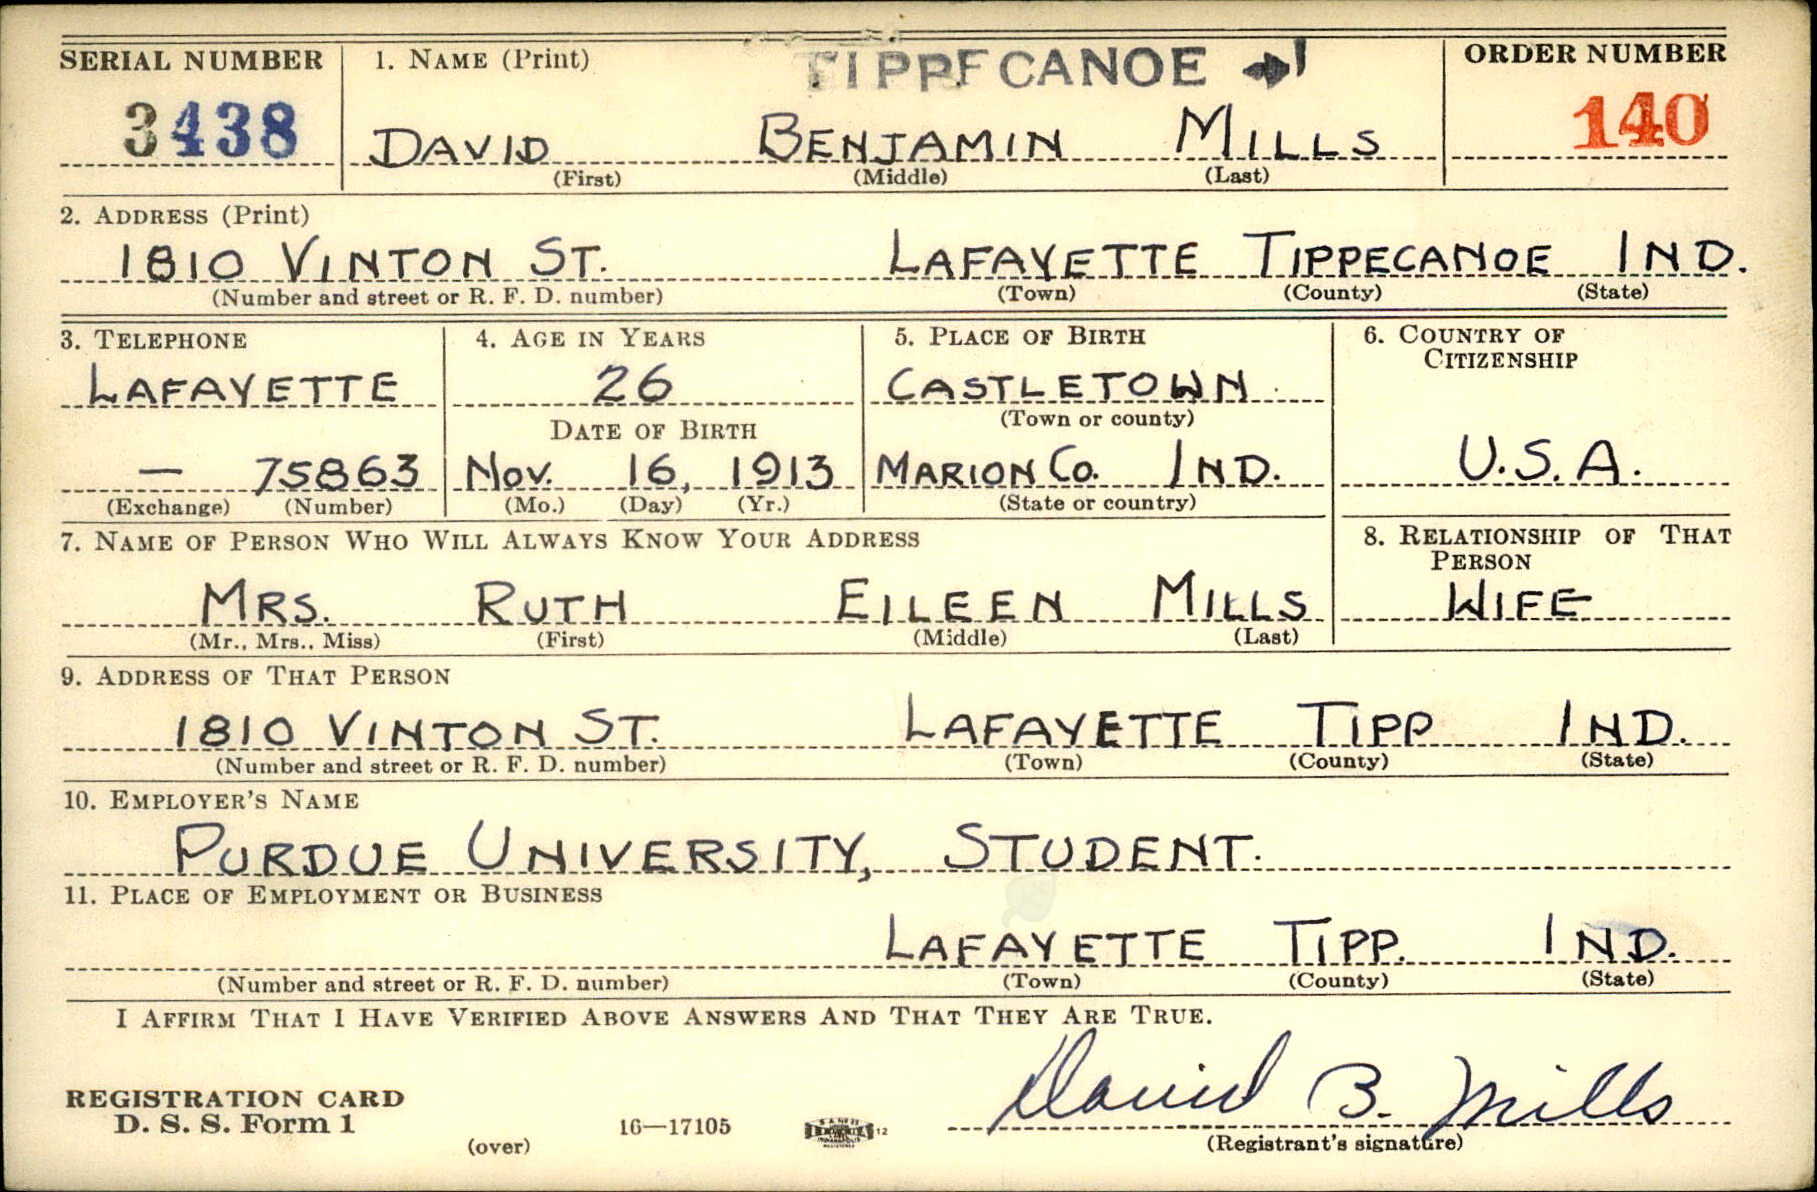 SERIAL NUMBER 1. NAME (Print) TIPPECANOE ORDER NUMBER
3438 DAVID BENJAMIN MILLS 140
(First) (Middle) (Last)
2. ADDRESS (Print)
1810 VINTON ST. LAFAYETTE TIPPECANOE IND.
(Number and street or R. F. D. number) (Town) (County) (State)
3. TELEPHONE 4. AGE IN YEARS 5. PLACE OF BIRTH 6. COUNTRY OF
CITIZENSHIP
LAFAYETTE 26 CASTLETOWN
(Town or county)
DATE OF BIRTH
— 75863 NOV. 16, 1913 MARION CO. IND. U.S.A.
(Exchange) (Number) (Mo.) (Day) (Yr.) (State or country)
7. NAME OF PERSON WHO WILL ALWAYS KNOW YOUR ADDRESS 8. RELATIONSHIP OF THAT
PERSON
MRS. RUTH EILEEN MILLS WIFE
(Mr., Mrs., Miss) (First) (Middle) (Last)
9. ADDRESS OF THAT PERSON
1810 VINTON ST. LAFAYETTE TIPP IND.
(Number and street or R. F. D. number) (Town) (County) (State)
10. EMPLOYER'S NAME
PURDUE UNIVERSITY, STUDENT.
11. PLACE OF EMPLOYMENT OR BUSINESS
LAFAYETTE TIPP. IND.
(Number and street or R. F. D. number) (Town) (County) (State)
I AFFIRM THAT I HAVE VERIFIED ABOVE ANSWERS AND THAT THEY ARE TRUE.
David B. Mills
REGISTRATION CARD
D. S. S. Form 1 16—17105 12
(over) (Registrant's signature)